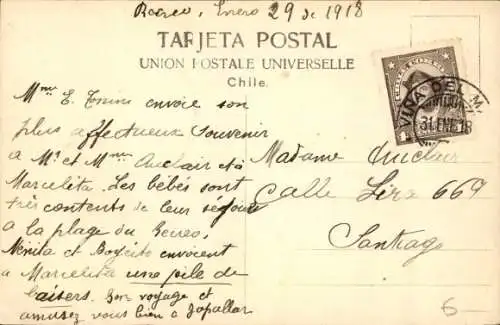 Recreo, Enero 29 de 1918
TARJETA POSTAL
UNION POSTALE UNIVERSELLE
Chile.
Mme E. envoie son
plus affectueux souvenir
à Mr et Mme Auclair et à
Marcelita. Les bébés sont
très contents de leur séjour
à la plage du Recreo.
Nenita et envoient
à Marcelita une pile de
baisers. Bon voyage et
amusez vous bien à Zapallar
VIÑA DEL M
31 ENE 18
Madame Auclair
Calle Lira 669
Santiago
6